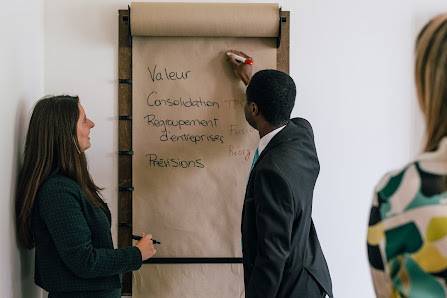 Valeur
Consolidation
Regroupement
d'entreprises
Prévisions